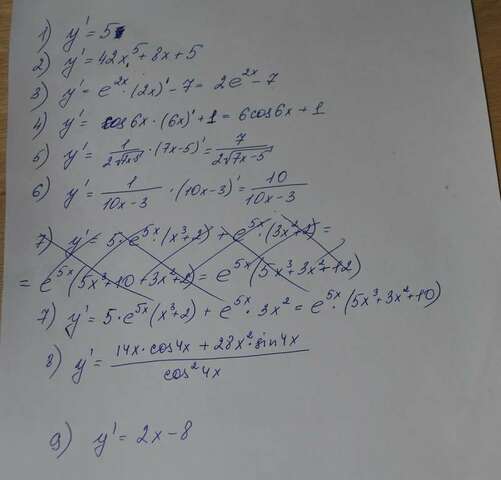 1) y' = 5
2) y' = 42x⁵ + 8x + 5
3) y' = e²ˣ · (2x)' - 7 = 2e²ˣ - 7
4) y' = cos 6x · (6x)' + 1 = 6cos6x + 1
5) y' = · (7x-5)' = 7/(2√(7x-5))
6) y' = 1/(10x-3) · (10x-3)' = 10/(10x-3)
7) y' = 5·e⁵ˣ(x³+2) + e⁵ˣ·(3x²+2) =
= e⁵ˣ(5x³+10+3x²+2) = e⁵ˣ(5x³+3x²+12)
7) y' = 5·e⁵ˣ(x³+2) + e⁵ˣ·3x² = e⁵ˣ·(5x³+3x²+10)
8) y' = (14x·cos4x + 28x²·sin4x)/(cos²4x)
9) y' = 2x - 8